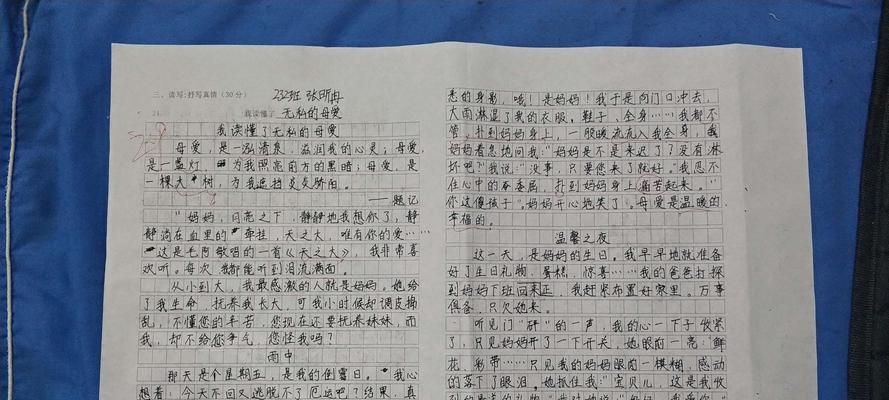 三、读写:抒写真情(30分)
232班 张昕冉
21.
我读懂了 无私的母爱
我读懂了无私的母爱
母爱,是一泓清泉,滋润我的心灵;母爱,
是一盏灯 为我照亮前方的黑暗;母爱,是
一棵大树,为我遮挡炎炎骄阳。
——题记
"妈妈,月亮之下,静静地我想你了,静
静淌在血里的牵挂,天之大,唯有你的爱……
这是毛阿敏唱的一首《天之大》,我非常喜
欢听。每次我都能听到泪流满面。
从小到大,我最感激的人就是妈妈。她给
了我生命,抚养我长大,可我小时候却调皮捣
乱,不懂您的辛苦,您现在还要抚养妹妹,而
我,却不给您争气,您怪我吗?
雨中
那天是个星期五,是我的倒霉日。我心
想着:今天不回又逃脱不了厄运吧?结果,真
悉的身影,哦!是妈妈!我于是向门口冲去,
大雨淋湿了我的衣服,鞋子,全身……我都不
管,扑到妈妈身上,一股暖流流入我全身,我
妈妈着急地问我:"妈妈是不是来迟了?没有淋
坏吧?"我说:"没事,只要您来了就好。"我忍不
住心中的委屈,扑到妈妈身上痛苦起来。"
你这傻孩子"。妈妈开心地笑了。母爱是温暖的,
幸福的。
温馨之夜
这一天,是妈妈的生日。我早早地就准备
好了生日礼物,蛋糕,惊喜……我的爸爸打探
到妈妈下班回来正,我赶紧布置好家里。万事
俱备,只欠她来。
听见门"砰"的一声,我的心一下子收紧
了,只见妈妈开了一下开关,她眼前一亮:鲜
花,彩带……只见我的妈妈眼前一模糊,感动
的落下了眼泪。她抓住我:"宝贝儿,这是我收